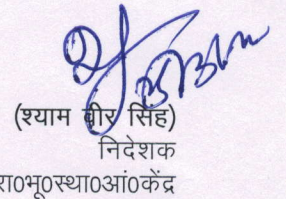 (श्याम वीर सिंह)
निदेशक
रा०भू०स्था०आं०केंद्र